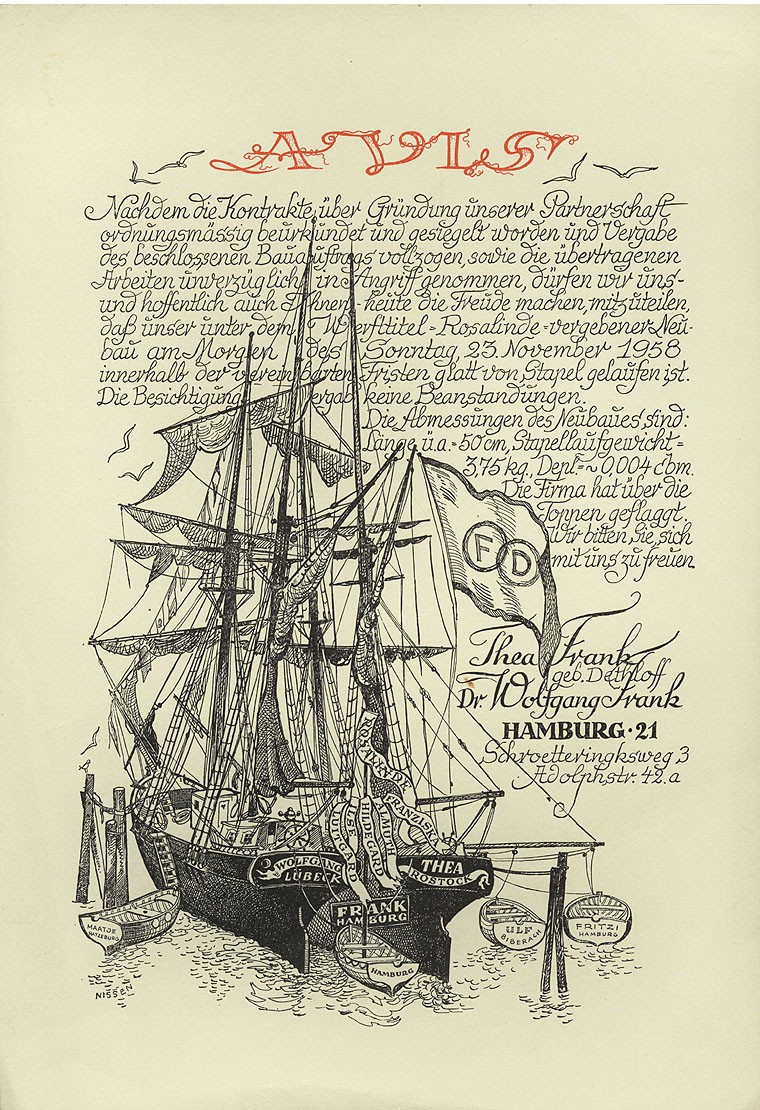 AVIS
Nachdem die Kontrakte über Gründung unserer Partnerschaft
ordnungsmässig beurkundet und gesiegelt worden und Vergabe
des beschlossenen Bauauftrags vollzogen, sowie die übertragenen
Arbeiten unverzüglich in Angriff genommen, dürfen wir uns-
und hoffentlich auch Ihnen heute die Freude machen, mitzuteilen,
daß unser unter dem Werfttitel-Rosalinde-vergebener Neu-
bau am Morgen des Sonntag, 23. November 1958
innerhalb der vereinbarten Fristen glatt von Stapel gelaufen ist.
Die Besichtigung ergab keine Beanstandungen.
Die Abmessungen des Neubaues sind:
Länge ü.a. = 50 cm, Stapellaufgewicht =
3,75 kg, Depl. = ~ 0,004 cbm.
Die Firma hat über die
Toppen geflaggt.
Wir bitten Sie, sich
mit uns zu freuen.
F D
Thea Frank
geb. Dethloff
Dr. Wolfgang Frank
HAMBURG · 21
Schroetteringksweg 3
Adolphstr. 42.a
ROSALINDE
FRANZISKA
ALMUTH
HILDEGARD
ILSE
LUITGARD
WOLFGANG
LÜBECK
THEA
ROSTOCK
FRANK
HAMBURG
HAMBURG
MAATJE
RATZEBURG
ULF
BIBERACH
FRITZI
HAMBURG
NISSEN